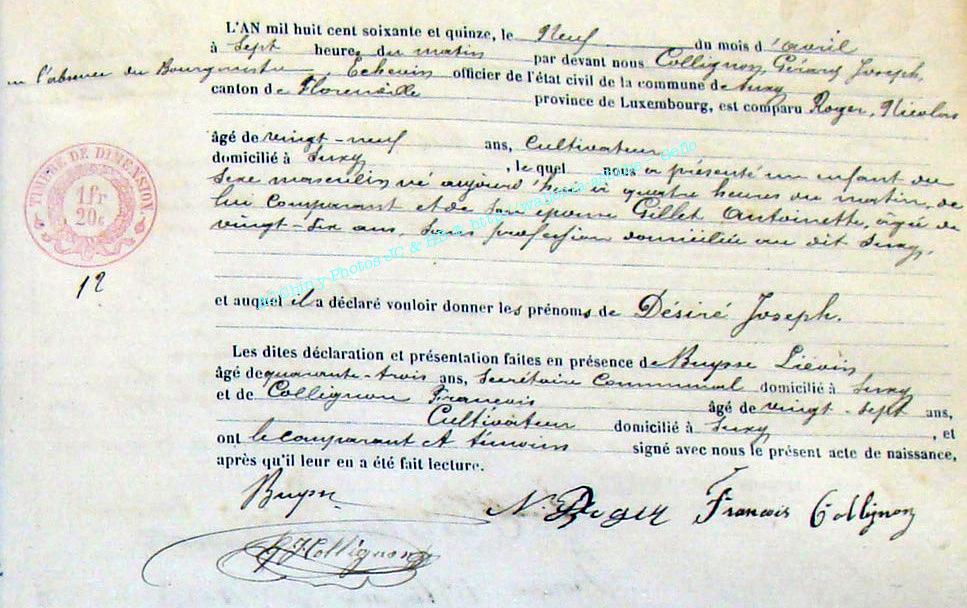 L'AN mil huit cent soixante et quinze, le Neuf du mois d'avril
à Sept heures du matin par devant nous Collignon, Gérard Joseph,
en l'absence du Bourgmestre Echevin officier de l'état civil de la commune de Suxy
canton de Florenville province de Luxembourg, est comparu Roger, Nicolas
âgé de vingt-neuf ans, Cultivateur
domicilié à Suxy, le quel nous a présenté un enfant du
Sexe masculin né aujourd'hui à quatre heures du matin, de
lui Comparant et de son épouse Gillet Antoinette, âgée de
vingt-six ans, Sans profession domiciliée au dit Suxy,
TIMBRE DE DIMENSION
1fr
20c
12
et auquel il a déclaré vouloir donner les prénoms de Désiré Joseph.
Les dites déclaration et présentation faites en présence de Buysse Liévin
âgé de quarante-trois ans, Secrétaire Communal domicilié à Suxy
et de Collignon François âgé de vingt-sept ans,
Cultivateur domicilié à Suxy, et
ont le comparant et témoins signé avec nous le présent acte de naissance,
après qu'il leur en a été fait lecture.
Buysse N Roger François Collignon
GJCollignon